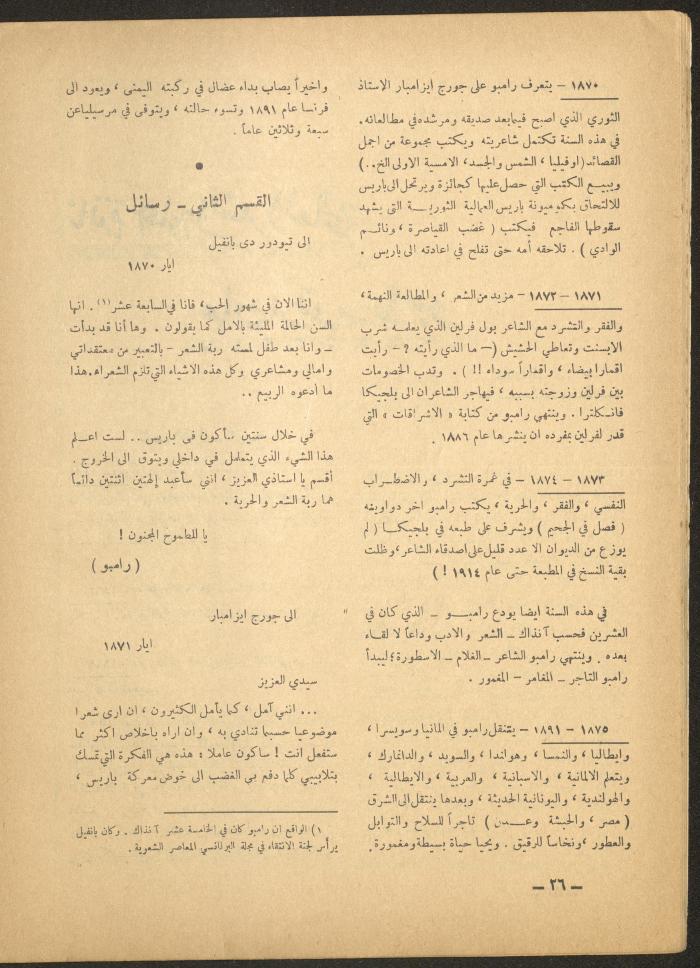 ١٨٧٠ – يتعرف رامبو على جورج ايزامبار الاستاذ
الثوري الذي اصبح فيما بعد صديقه ومرشده في مطالعاته.
في هذه السنة تكتمل شاعريته ويكتب مجموعة من اجمل
القصائد (اوفيليا ، الشمس والجسد، الامسية الاولى الخ..)
ويبيع الكتب التي حصل عليها كجائزة ويرتحل الى باريس
للالتحاق بكوميونة باريس العمالية الثورية التي يشهد
سقوطها الفاجع فيكتب ( غضب القياصرة ، ونائم
الوادي ) . تلاحقه أمه حتى تفلح في اعادته الى باريس .
١٨٧١ – ١٨٧٢ – مزيد من الشعر ، والمطالعة النهمة،
والفقر والتشرد مع الشاعر بول فرلين الذي يعلمه شرب
الابسنت وتعاطي الحشيش (– ما الذي رأيته ؟ – رأيت
اقمارا بيضاء ، واقماراً سوداء !! ) . وتدب الخصومات
بين فرلين وزوجته بسببه ، فيهاجر الشاعران الى بلجيكا
فانكلترا . وينتهي رامبو من كتابة « الاشراقات » التي
قدر لفرلين بمفرده ان ينشرها عام ١٨٨٦ .
١٨٧٣ – ١٨٧٤ – في غمرة التشرد ، والاضطراب
النفسي ، والفقر ، والحرية ، يكتب رامبو اخر دواوينه
( فصل في الجحيم ) ويشرف على طبعه في بلجيكا ( لم
يوزع من الديوان الا عدد قليل على اصدقاء الشاعر، وظلت
بقية النسخ في المطبعة حتى عام ١٩١٤ ! )
في هذه السنة ايضا يودع رامبو – الذي كان في
العشرين فحسب آنذاك – الشعر والادب وداعاً لا لقاء
بعده . وينتهي رامبو الشاعر – الغلام – الاسطورة ؛ ليبدأ
رامبو التاجر – المغامر – المغمور .
١٨٧٥ – ١٨٩١ – يتنقل رامبو في المانيا وسويسرا ،
وايطاليا ، والنمسا ، وهولندا ، والسويد ، والدانمارك ،
ويتعلم الالمانية ، والاسبانية ، والعربية ، والايطالية ،
والهولندية ، واليونانية الحديثة ، وبعدها ينتقل الى الشرق
( مصر ، والحبشة وعدن ) تاجراً للسلاح والتوابل
والعطور ، ونخاساً للرقيق . ويحيا حياة بسيطة ومغمورة .
واخيراً يصاب بداء عضال في ركبته اليمنى ، ويعود الى
فرنسا عام ١٨٩١ وتسوء حالته ، ويتوفى في مرسيليا عن
سبعة وثلاثين عاماً .
القسم الثاني – رسائل
الى تيودور دى بانفيل
ايار ١٨٧٠
اننا الان في شهور الحب، فانا في السابعة عشر (١) . انها
السن الحالمة المليئة بالامل كما يقولون . وها أنا قد بدأت
– وانا بعد طفل لمسته ربة الشعر – بالتعبير عن معتقداتي
وامالي ومشاعري وكل هذه الاشياء التي تلزم الشعراء. هذا
ما أدعوه الربيع ..
في خلال سنتين سأكون فى باريس .. لست اعلم
هذا الشيء الذي يتململ في داخلي ويتوق الى الخروج .
أقسم يا استاذي العزيز ، انني سأعبد إلهتين اثنتين دائماً
هما ربة الشعر والحرية .
يا للطموح المجنون !
( رامبو )
الى جورج ايزامبار
ايار ١٨٧١
سيدي العزيز
... انني آمل ، كما يأمل الكثيرون ، ان ارى شعرا
موضوعيا حسبما تنادي به ، وان اراه باخلاص اكثر مما
ستفعل انت ! ساكون عاملا : هذه هي الفكرة التي تمسك
بتلابيبي كلما دفع بي الغضب الى خوض معركة باريس ،
١) الواقع ان رامبو كان في الخامسة عشر آنذاك . وكان بانفيل
يرأس لجنة الانتقاء في مجلة البرناسي المعاصر الشعرية .
– ٢٦ –